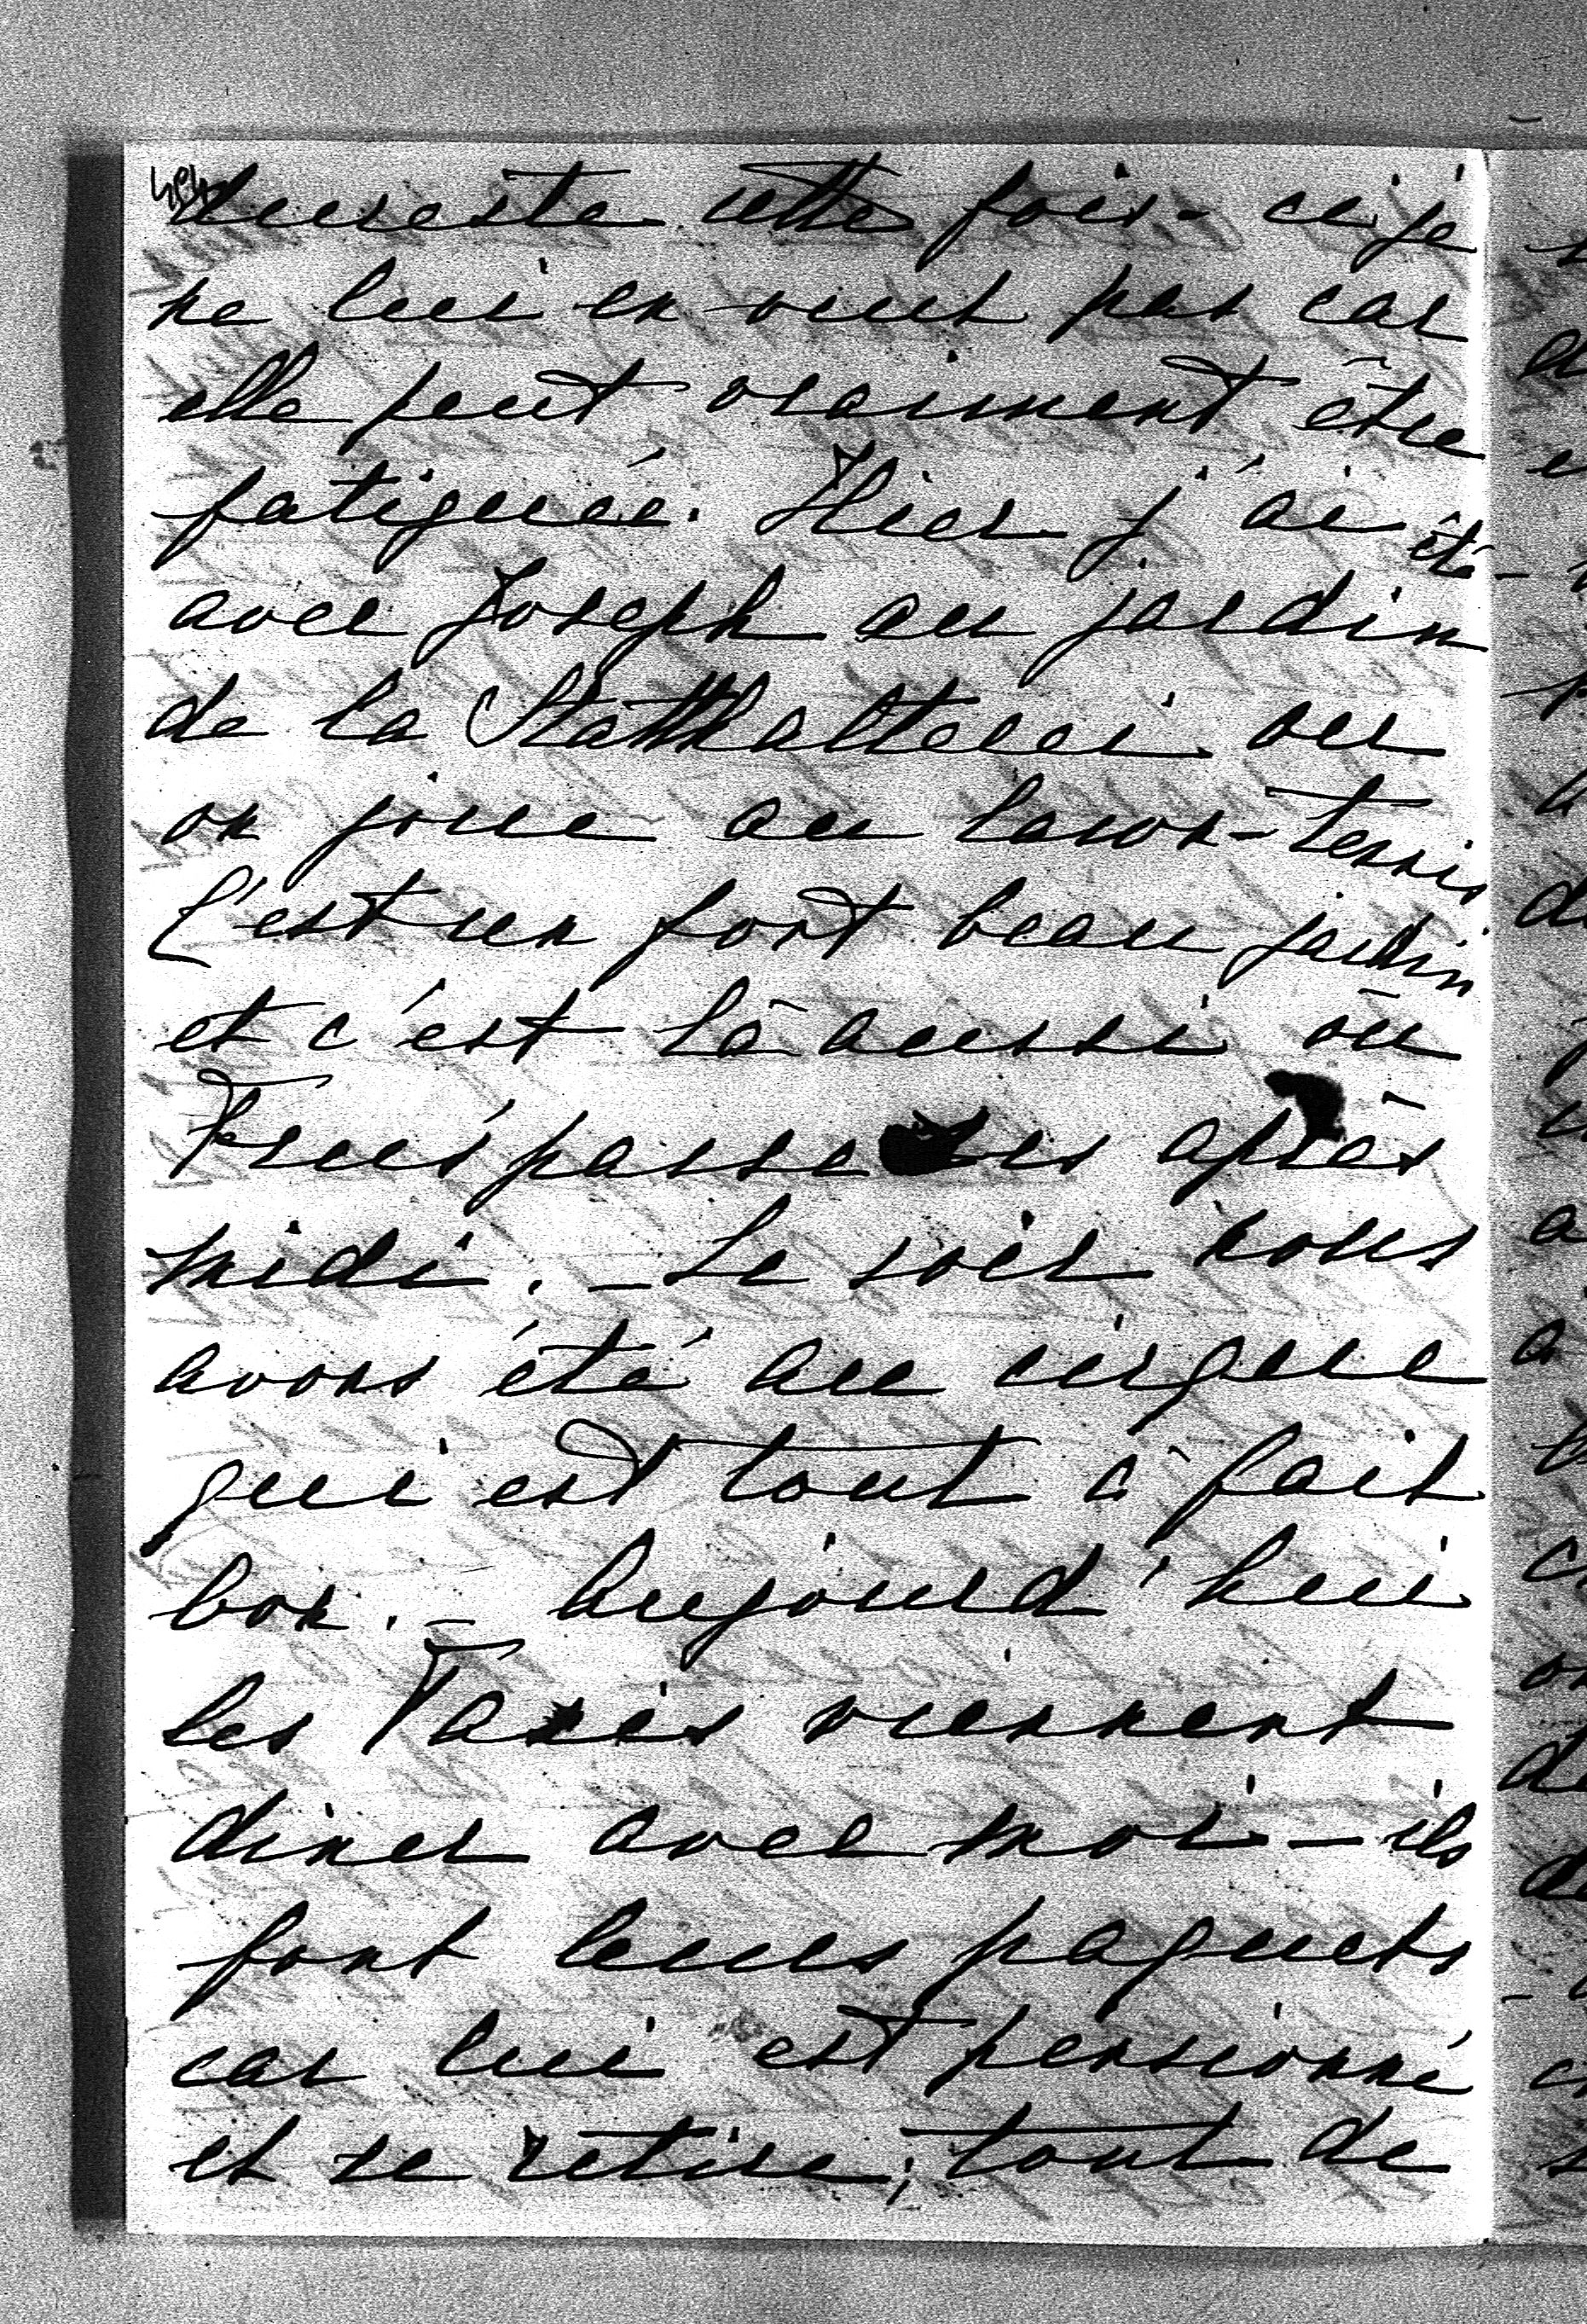 dureste cette fois-ci je
ne lui en veut pas car
elle peut vraiment être
fatiguée. Hier j'ai été
avec Joseph au jardin
de la Statthalterei ou
on joue au lawn-tennis
C'est un fort beau jardin
et c'est là aussi où
passe ses après
midi. – Le soir nous
avons été au cirque
qui est tout à fait
bon. – Aujourd'hui
les Taxis viennent
diner avec moi – ils
font leurs paquets
car lui est pensionné
et se retire; tout de